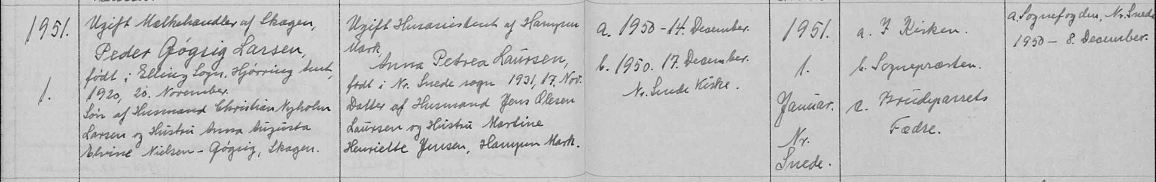 1951.
1.
Ugift Mælkehandler af Skagen,
Peder Gøgsig Larsen,
født i Elling Sogn, Hjørring Amt,
1920, 20. November.
Søn af Husmand Christian Nyholm
Larsen og Hustru Anna Augusta
Elvine Nielsen-Gøgsig, Skagen.
Ugift Husassistent af Hampen
Mark,
Anna Petrea Laursen,
født i Nr. Snede sogn 1931, 17. Nov.
Datter af Husmand Jens Olesen
Laursen og Hustru Martine
Henriette Jensen, Hampen Mark.
a. 1950-14. December.
b. 1950. 17. December.
Nr. Snede Kirke.
1951.
1.
Januar.
Nr.
Snede.
a. I Kirken.
b. Sognepræsten.
c. Brudeparrets
Fædre.
a. Sognefogden, Nr. Snede
1950-8. December.